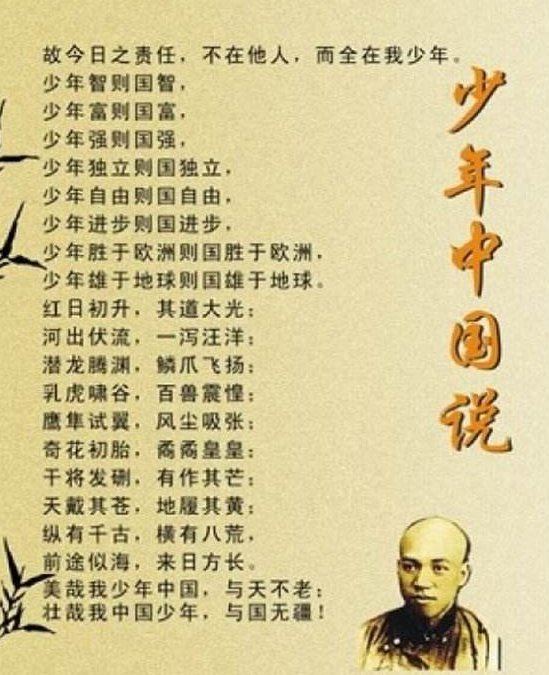 少年中国说
故今日之责任，不在他人，而全在我少年。
少年智则国智，
少年富则国富，
少年强则国强，
少年独立则国独立，
少年自由则国自由，
少年进步则国进步，
少年胜于欧洲则国胜于欧洲，
少年雄于地球则国雄于地球。
红日初升，其道大光；
河出伏流，一泻汪洋；
潜龙腾渊，鳞爪飞扬；
乳虎啸谷，百兽震惶；
鹰隼试翼，风尘吸张；
奇花初胎，矞矞皇皇；
干将发硎，有作其芒；
天戴其苍，地履其黄；
纵有千古，横有八荒，
前途似海，来日方长。
美哉我少年中国，与天不老；
壮哉我中国少年，与国无疆！